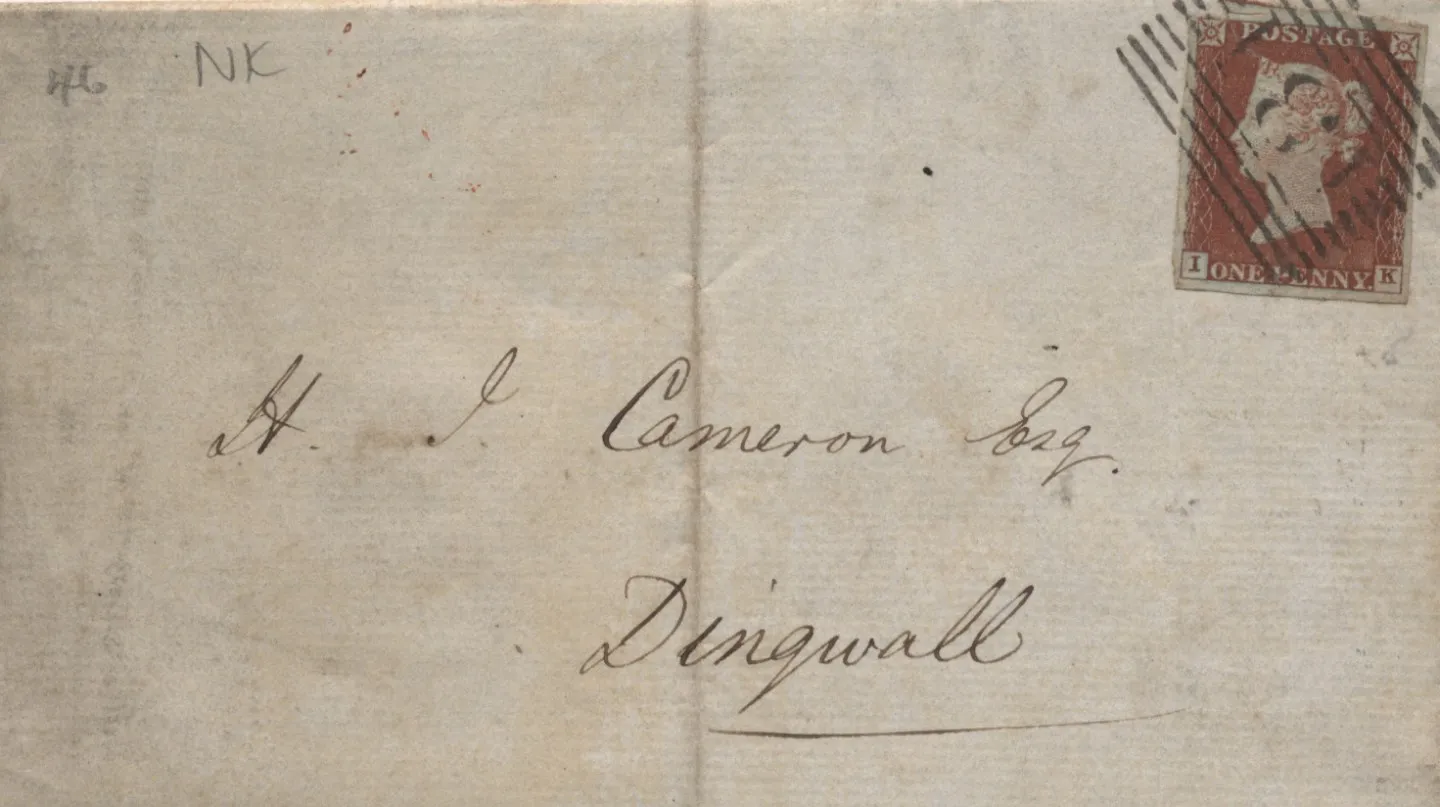 46 NK
POSTAGE
I ONE PENNY. K
H. J. Cameron Esq.
Dingwall